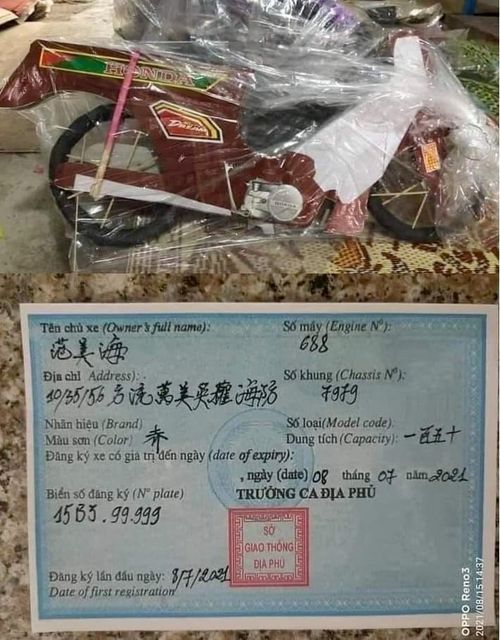 HONDA
Dream
HONDA
Tên chủ xe (Owner's full name):
Số máy (Engine Nº):
海
688
Địa chỉ Address):
Số khung (Chassis Nº):
10/35/56
萬美
海防
7979
Nhãn hiệu (Brand)
Số loại(Model code):
Màu sơn (Color)
Dung tích (Capacity): 一百五十
Đăng ký xe có giá trị đến ngày (date of expiry):
, ngày (date) 08 tháng 07 năm 2021
Biển số đăng ký (Nº plate)
TRƯỞNG CA ĐỊA PHỦ
99.999
SỞ
GIAO THÔNG
ĐỊA PHỦ
Đăng ký lần đầu ngày: 8/7/2021
Date of first registration
OPPO Reno3
2021/08/15 14:37